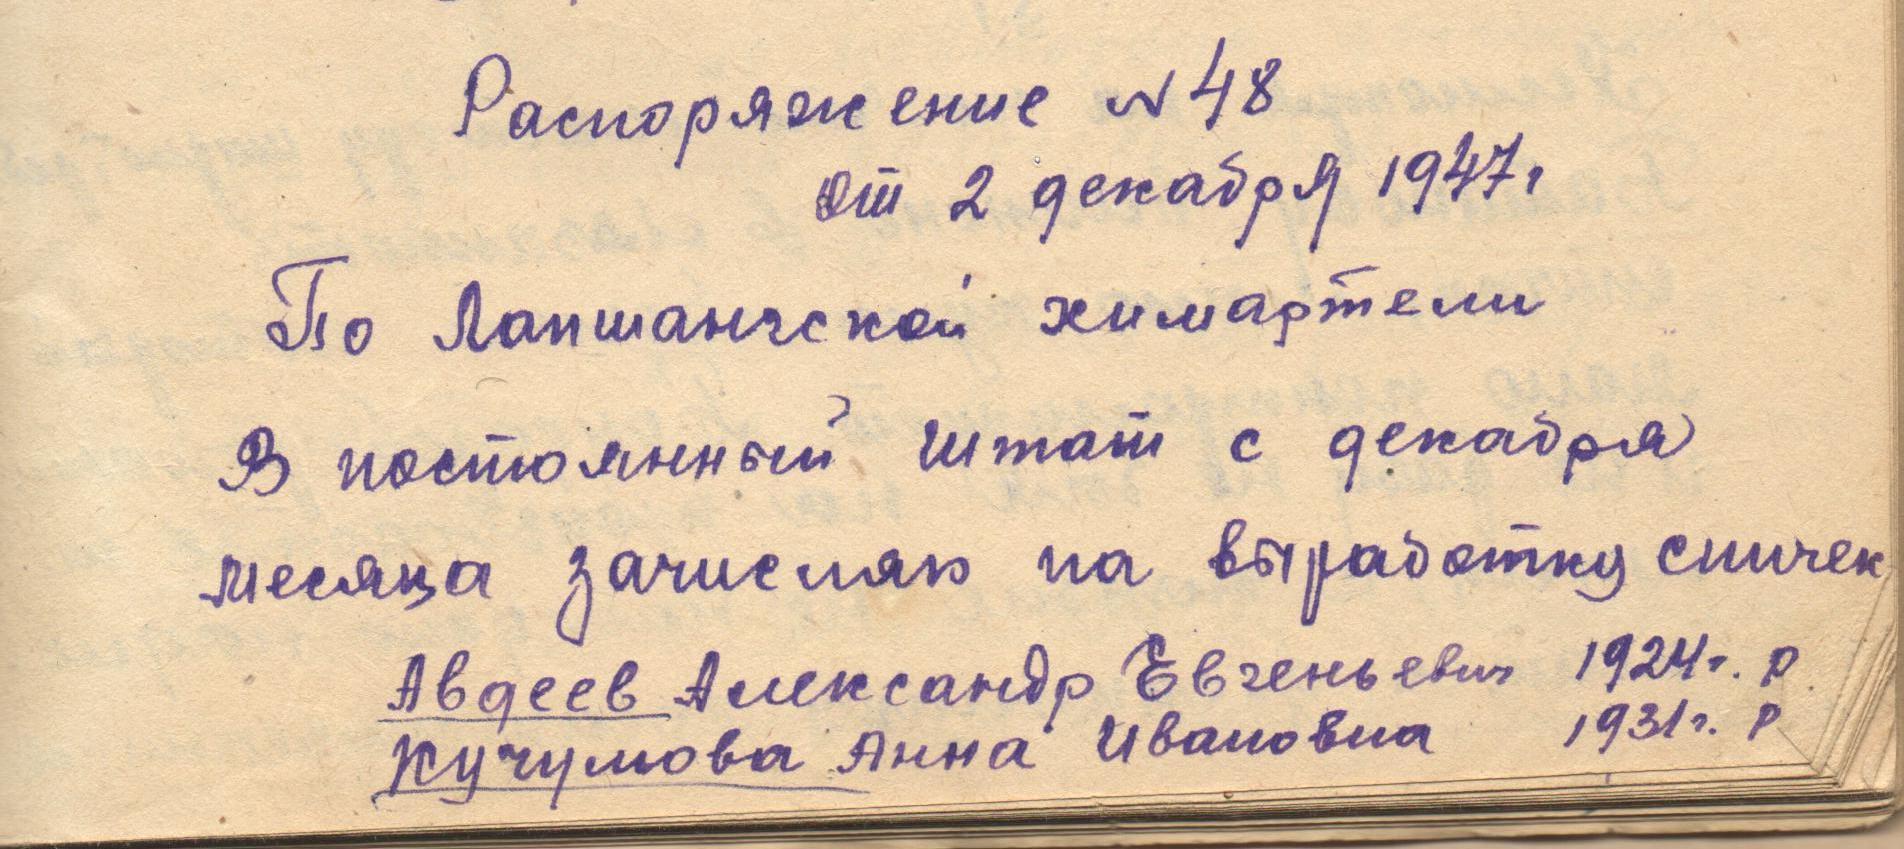 Распоряжение N 48
от 2 декабря 1947 г
По Лапшангской химартели
В постоянный штат с декабря
месяца зачисляю на выработку спичек
Авдеев Александр Евгеньевич 1924 г. р
Кучумова Анна Ивановна 1931 г. р